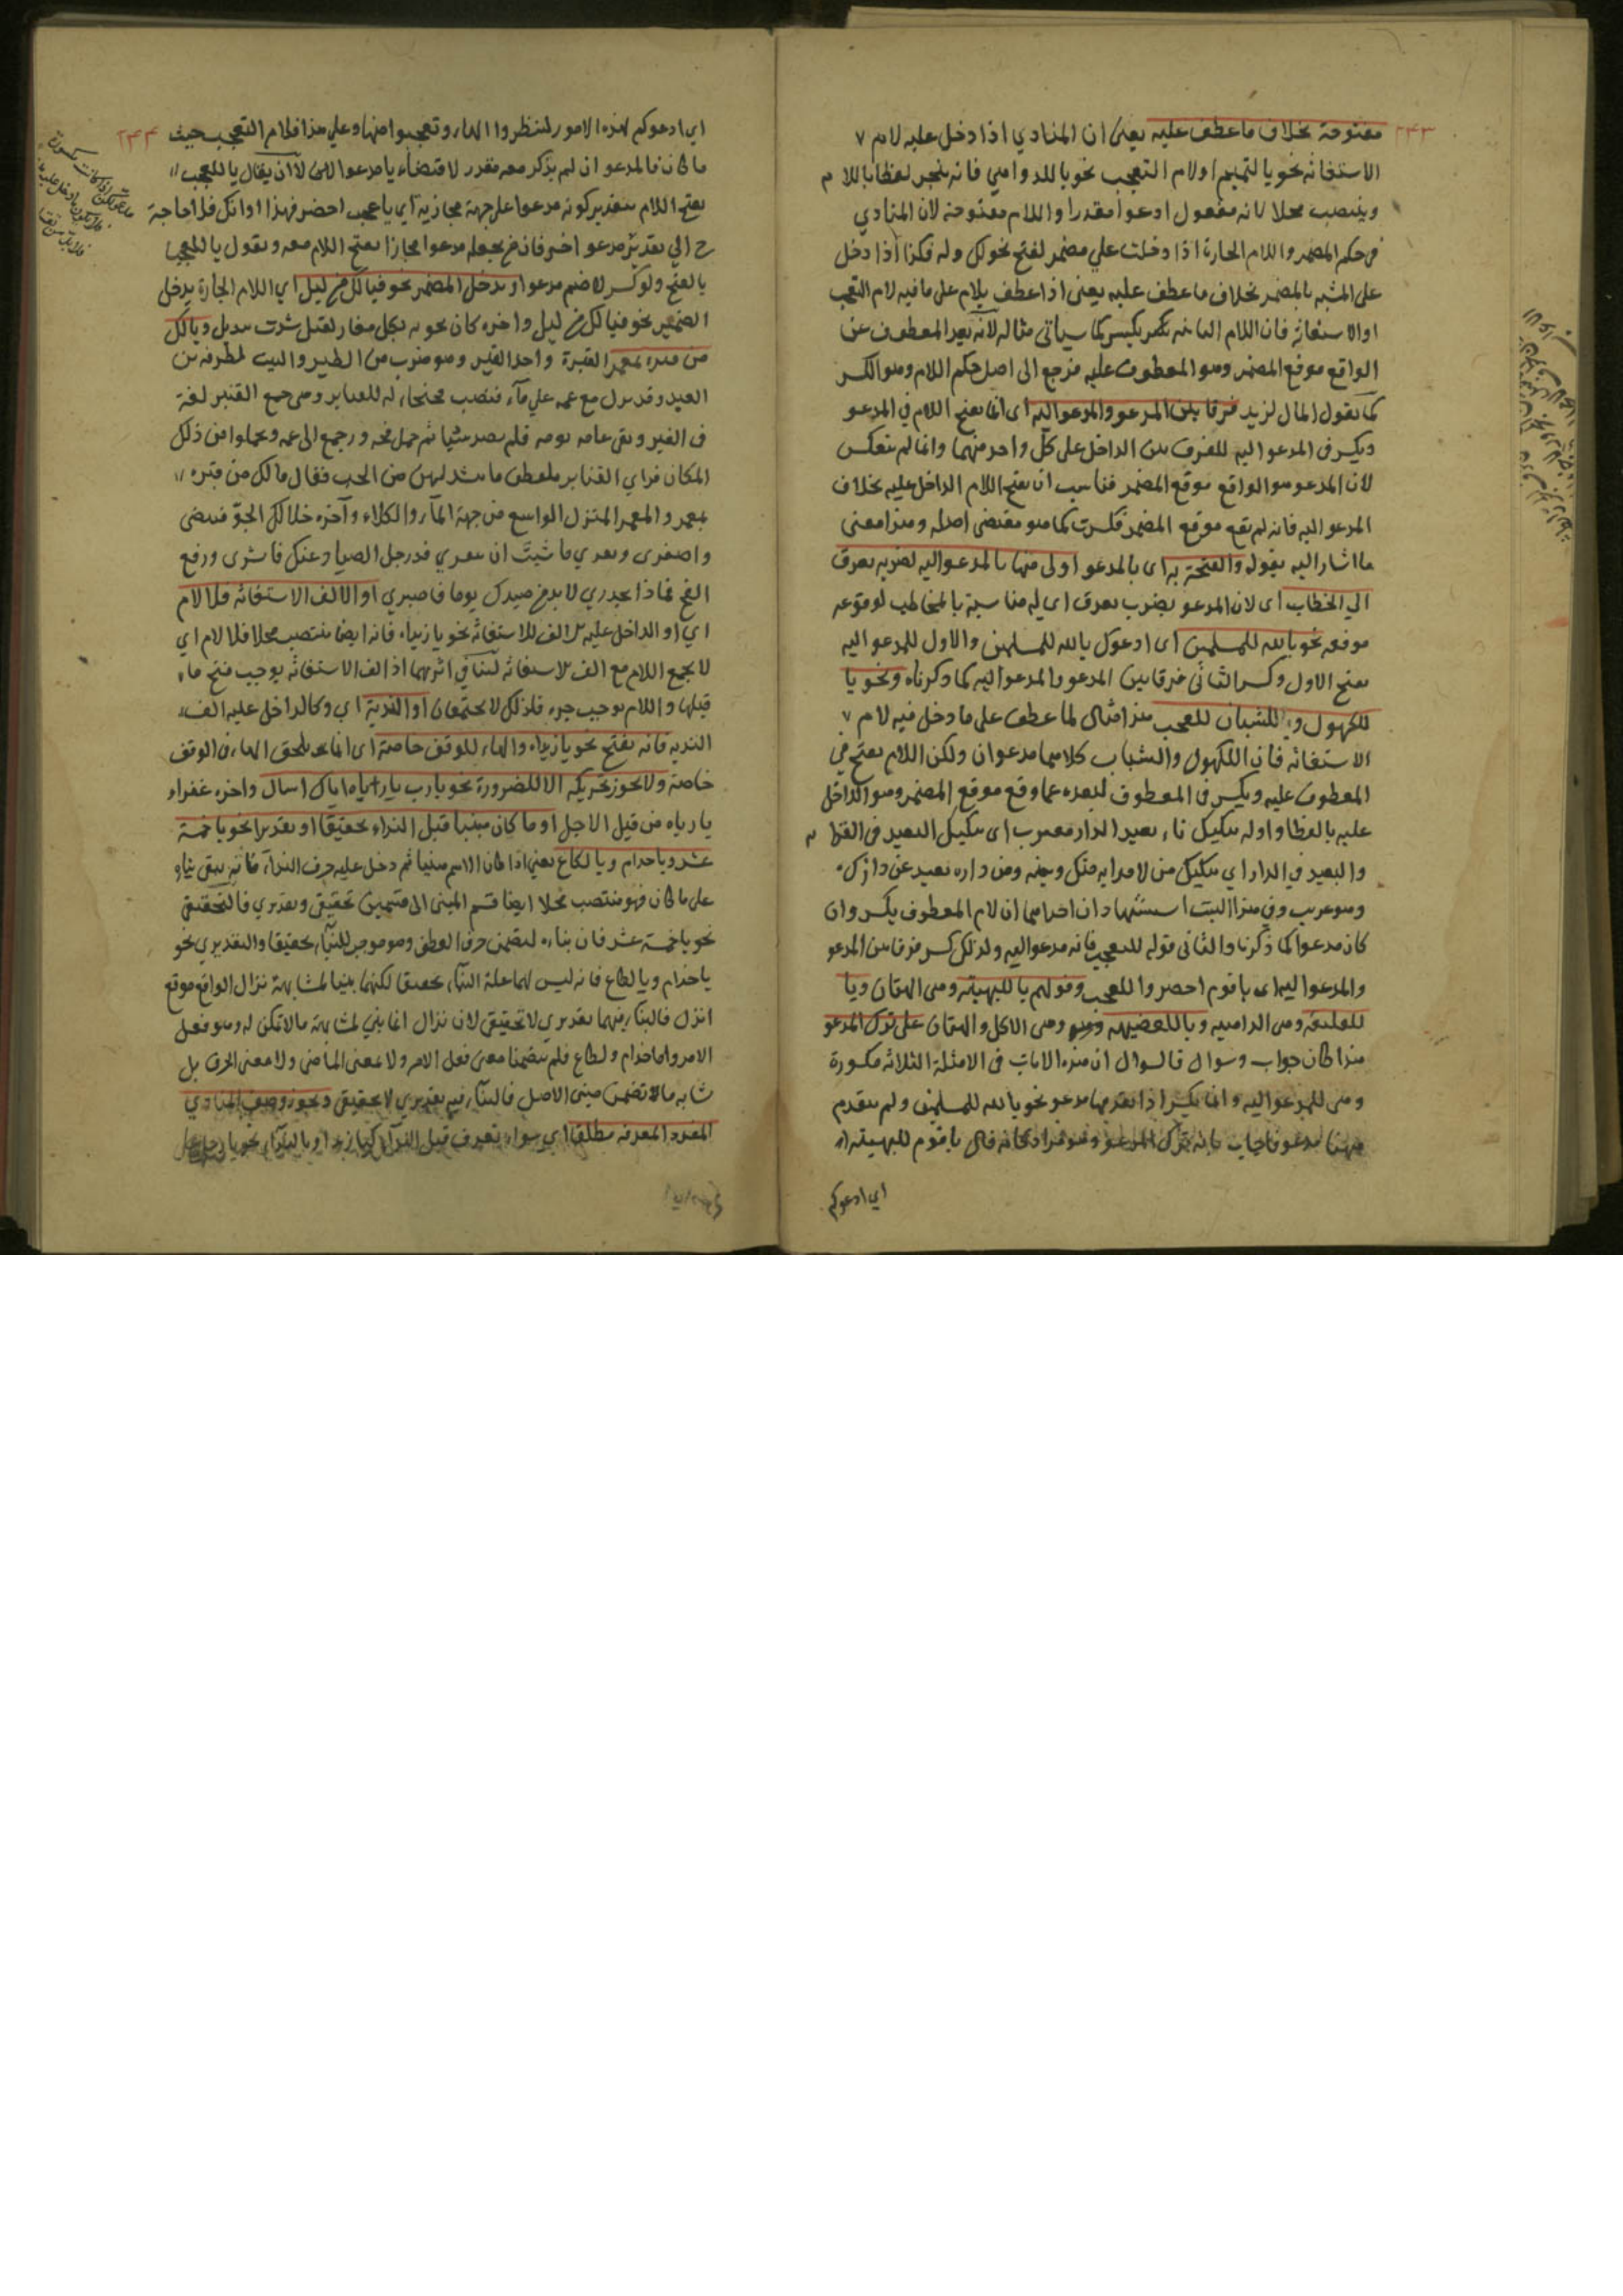 ٢٤٣
مفتوحة بخلاف ما عطف عليه يعنى ان المنادي اذا دخل عليه لام
الاستغاثه نحو يا لتميم او لام التعجب نحو يا للدواهي فانه ينجر لفظا باللام
وينتصب محلا لانه مفعول ادعوا مقدرا واللام مفتوحة لان المنادي
في حكم المضمر واللام الجارة اذا دخلت علي مضمر لفتح نحو لك وله فكذا اذا دخل
على المشبه بالمضمر بخلاف ما عطف عليه يعنى اذا عطف بلام على ما فيه لام التعجب
او الاستغاثه فان اللام الثانيه يكسر كما سياتى مثاله لانه بعد المعطوف عن
الواقع موقع المضمر وهو المعطوف عليه فرجع الى اصل حكم اللام وهو الكسر
كما يقول المال لزيد فرقا بين المدعو والمدعو اليه اى انما يفتح اللام في المدعو
ويكسر فى المدعو اليه للفرق بين الداخل على كل واحد منهما وانما لم ينعكس
لان المدعو هو الواقع موقع المضمر فناسب ان يفتح اللام الداخل عليه بخلاف
المدعو اليه فانه لم يقع موقع المضمر فكسرت كما هو مقتضى اصله وهذا معنى
ما اشار اليه بقوله والفتحة به اى بالمدعو اولى منها بالمدعو اليه لضربه بعرق
الي الخطاب اى لان المدعو يضرب بعرق اى له مناسبة بالمخاطب لوقوعه
موقعه نحو يا لله للمسلمين اى ادعوك يا لله للمسلمين والاول للمدعو اليه
بفتح الاول وكسر الثانى فرقا بين المدعو والمدعو اليه كما ذكرناه ونحو يا
للكهول وللشبان للعجب هذا مثال لما عطف على ما دخل فيه لام
الاستغاثه فان الكهول والشباب كلاهما مدعوان ولكن اللام يفتح في
المعطوف عليه ويكسر فى المعطوف لبعده عما وقع موقع المضمر وهو الداخل
عليه يا لفظا واوله يبكيك ناء بعيد الدار مغترب اى يبكيك البعيد فى
والبعيد في الدار اي يبكيك من لا قرابه منك وبينه ومن داره بعيد عن دارك
وهو غريب وفي هذا البيت استشهادان احدهما ان لام المعطوف يكسر وان
كان مدعوا كما ذكرنا والثانى قوله للعجب فانه مدعو اليه ولذلك كسر فرقا بين المدعو
والمدعو اليه اى يا قوم احضروا للعجب وقولهم يا للبهيتة وهى البهتان ويا
للفليقه وهى الداهيه ويا للعضيهه وهى الافك والبهتان على ترك المدعو
هذا كان جواب وسوال فالسوال ان هذه اللامات فى الامثلة الثلاثه مكسورة
وهى للمدعو اليه وانما يكسر اذا تقدمها مدعو نحو يا لله للمسلمين ولم يتقدم
ههنا مدعو فاجاب بانه ترك المدعو وهو مراد كانه قال يا قوم للبهيته
اي ادعوكم
٢٤٤
اي ادعوكم لهذه الامور لتنظروا اليها وتعجبوا منها وعلي هذا فلام التعجب حيث
ما كان فالمدعو ان لم يذكر معه مقدر لاقتضاء يا مدعوا الا ان يقال يا للعجب
بفتح اللام بتقدير كونه مدعوا على جهة مجازية اي يا عجب احضر فهذا اوانك فلا حاجة
ح الي تقدير مدعو اخر فانه ح بجعله مدعوا مجازا بفتح اللام معه ويقول يا للعجب
بالفتح ولو كسر لا ضم مدعوا ويدخل المضمر نحو فيا لك من ليل اي اللام الجارة يدخل
الضمير نحو فيا لك من ليل واخره كان نجومه بكل مغار الفتل شدت بيذبل ويا لك
من قبره بمعمر القبرة واحد القبر وهو ضرب من الطير والبيت لطرفة بن
العبد وقد نزل مع عمه علي ماء فنصب فخا له للقنابر وهى جمع القنبر لغة
فى القبر وبقى عامه يومه فلم يصد شيا ثم حمل فخه ورجع الى عمه وتحملوا من ذلك
المكان فراي القنابر يلتقطن ما نثر لهن من الحب فقال يا لك من قبره
بمعمر والمعمر المنزل الواسع من جهة الماء والكلاء وآخره خلا لك الجو فبيضى
واصفرى ونقري ما شيت ان تنقري قد رحل الصياد عنك فابشرى ورفع
الفخ فماذا تحذري لا بد من صيدك يوما فاصبري او الالف الاستغاثه فلا لام
اي او الداخل عليه الف للاستغاثه نحو يا زيداه فانه ايضا ينتصب محلا فلا لام اي
لا يجمع اللام مع الف الاستغاثه لتنافي اثريهما اذ الف الاستغاثه يوجب فتح ما
قبلها واللام يوجب جره فلذلك لا يجتمعان او الندبة اي وكالداخل عليه الف
الندبه فانه يفتح نحو يا زيداه والهاء للوقف خاصة اى انما يلحق الهاء فى الوقف
خاصة ولا يجوز تحريكه الا للضرورة نحو يا رب يا رباه اياك اسال واخره عفراء
يا رباه من قبل الاجل او ما كان مبنيا قبل النداء تحقيقا او تقديرا نحو يا خمسة
عشر ويا حذام ويا لكاع يعني اذا كان الاسم مبنيا ثم دخل عليه حرف النداء فانه يبقى بناؤه
على ما كان فهو منتصب محلا ايضا قسم المبنى الى قسمين تحقيقى وتقديري فالتحقيقى
نحو يا خمسة عشر فان بناءه لتضمن حرف العطف وهو موجب للبناء تحقيقا والتقديري نحو
يا حذام ويا لكاع فانه ليس لهما علة البناء تحقيقا لكنهما بنيا لمشابهة نزال الواقع موقع
انزل فالبناء فيهما تقديري لا تحقيقى لان نزال انما بني لمشابهة ما لا تمكن له وهو فعل
الامر واما حذام ولكاع فلم يتضمنا معنى فعل الامر ولا معنى الماضى ولا معنى الحرف بل
شابه ما لا تضمن مبنى الاصل فالبناء فيه تقديري لا تحقيقى ويجوز وصف المنادي
المفرد المعرفه مطلقا اي سواء تعرف قبل النداء كيا زيد او بالنداء نحو يا رجل